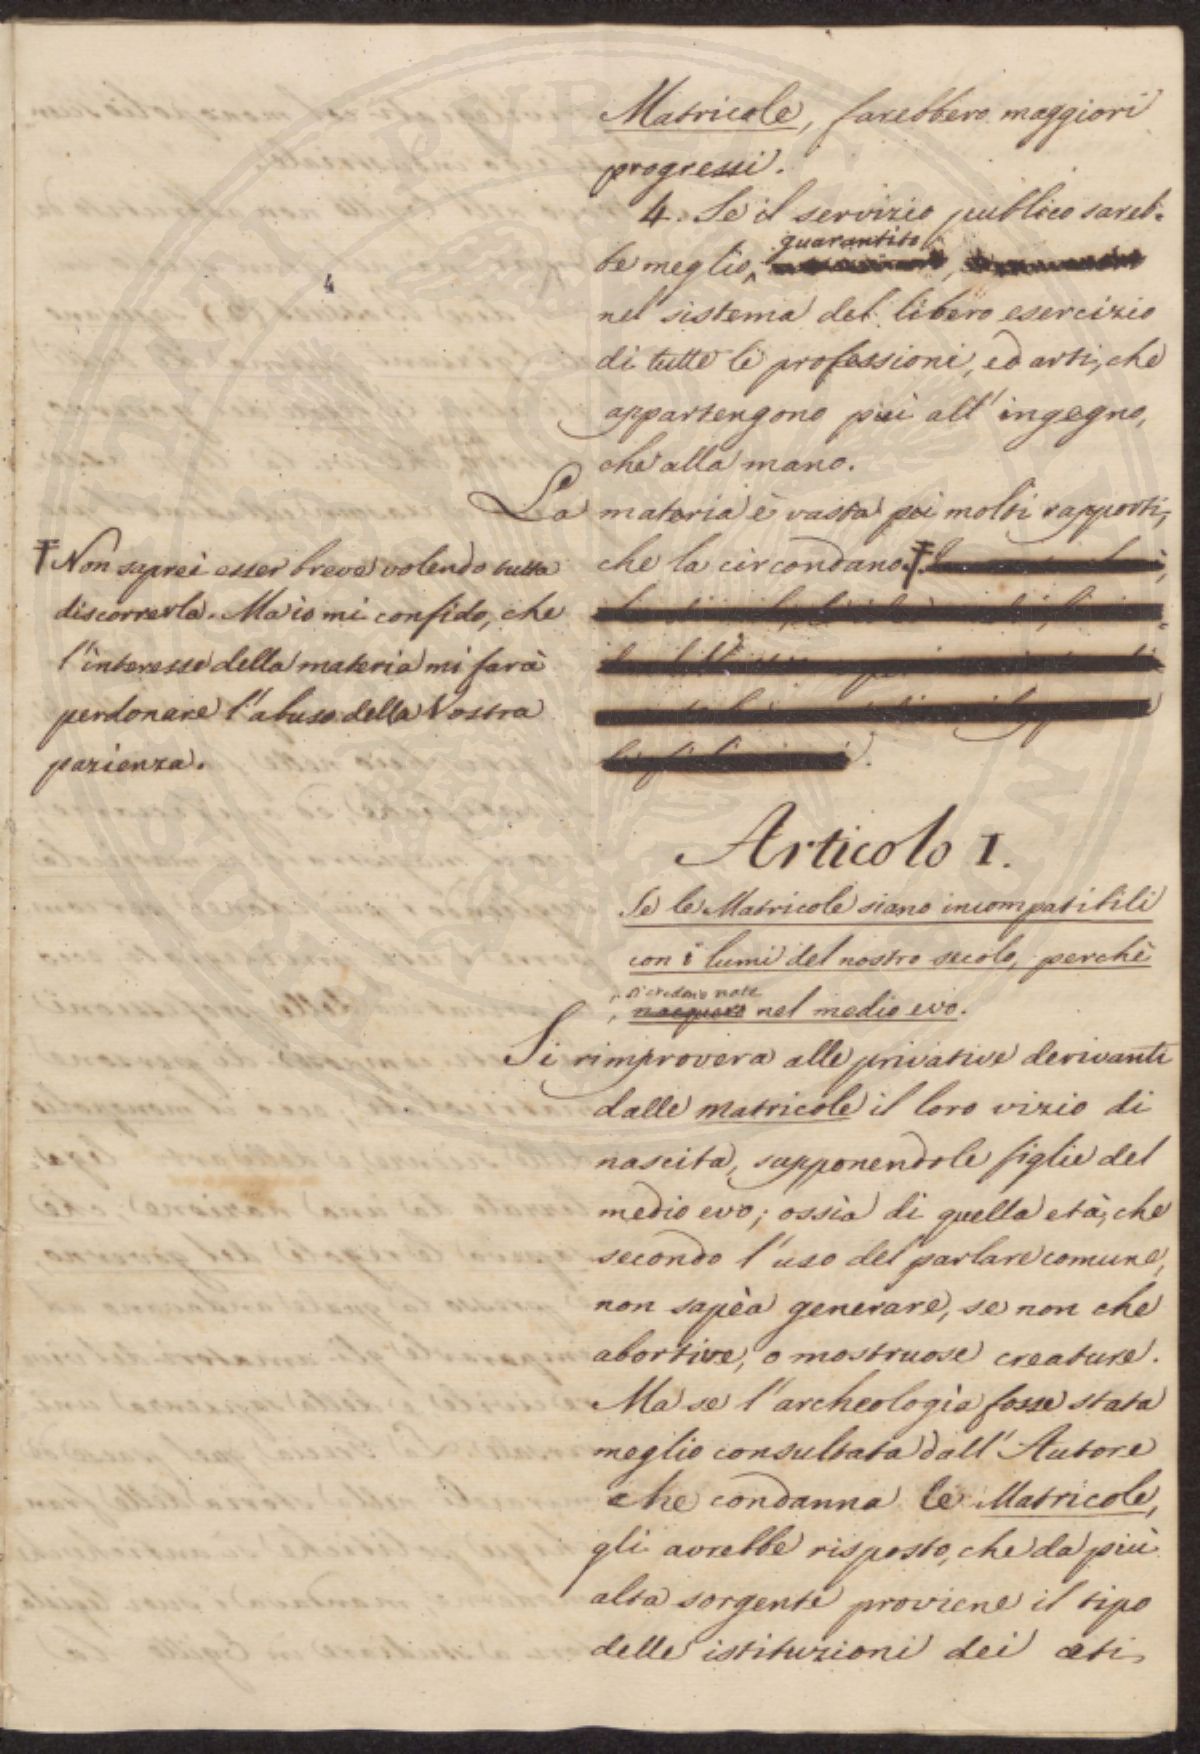 Matricole, farebbero maggiori
progressi.
4. Se il servizio publico sareb=
be meglio, guarantito,
nel sistema del libero esercizio
di tutte le professioni, ed arti, che
appartengono più all'ingegno,
che alla mano.
La materia è vasta pei molti rapporti,
che la circondano.
Non saprei esser breve volendo tutta
discorrerla. Ma io mi confido, che
l'interesse della materia mi farà
perdonare l'abuso della Vostra
pazienza.
4
Articolo I.
Se le Matricole siano incompatibili
con i lumi del nostro secolo, perchè
si credono nate
nacquero nel medio evo.
Si rimprovera alle privative derivanti
dalle matricole il loro vizio di
nascita, supponendole figlie del
medio evo; ossia di quella età, che
secondo l'uso del parlare comune,
non sapèa generare, se non che
abortive, o mostruose creature.
Ma se l'archeologia fosse stata
meglio consultata dall'Autore
che condanna le Matricole,
gli avrebbe risposto, che da più
alta sorgente proviene il tipo
delle istituzioni dei ceti,